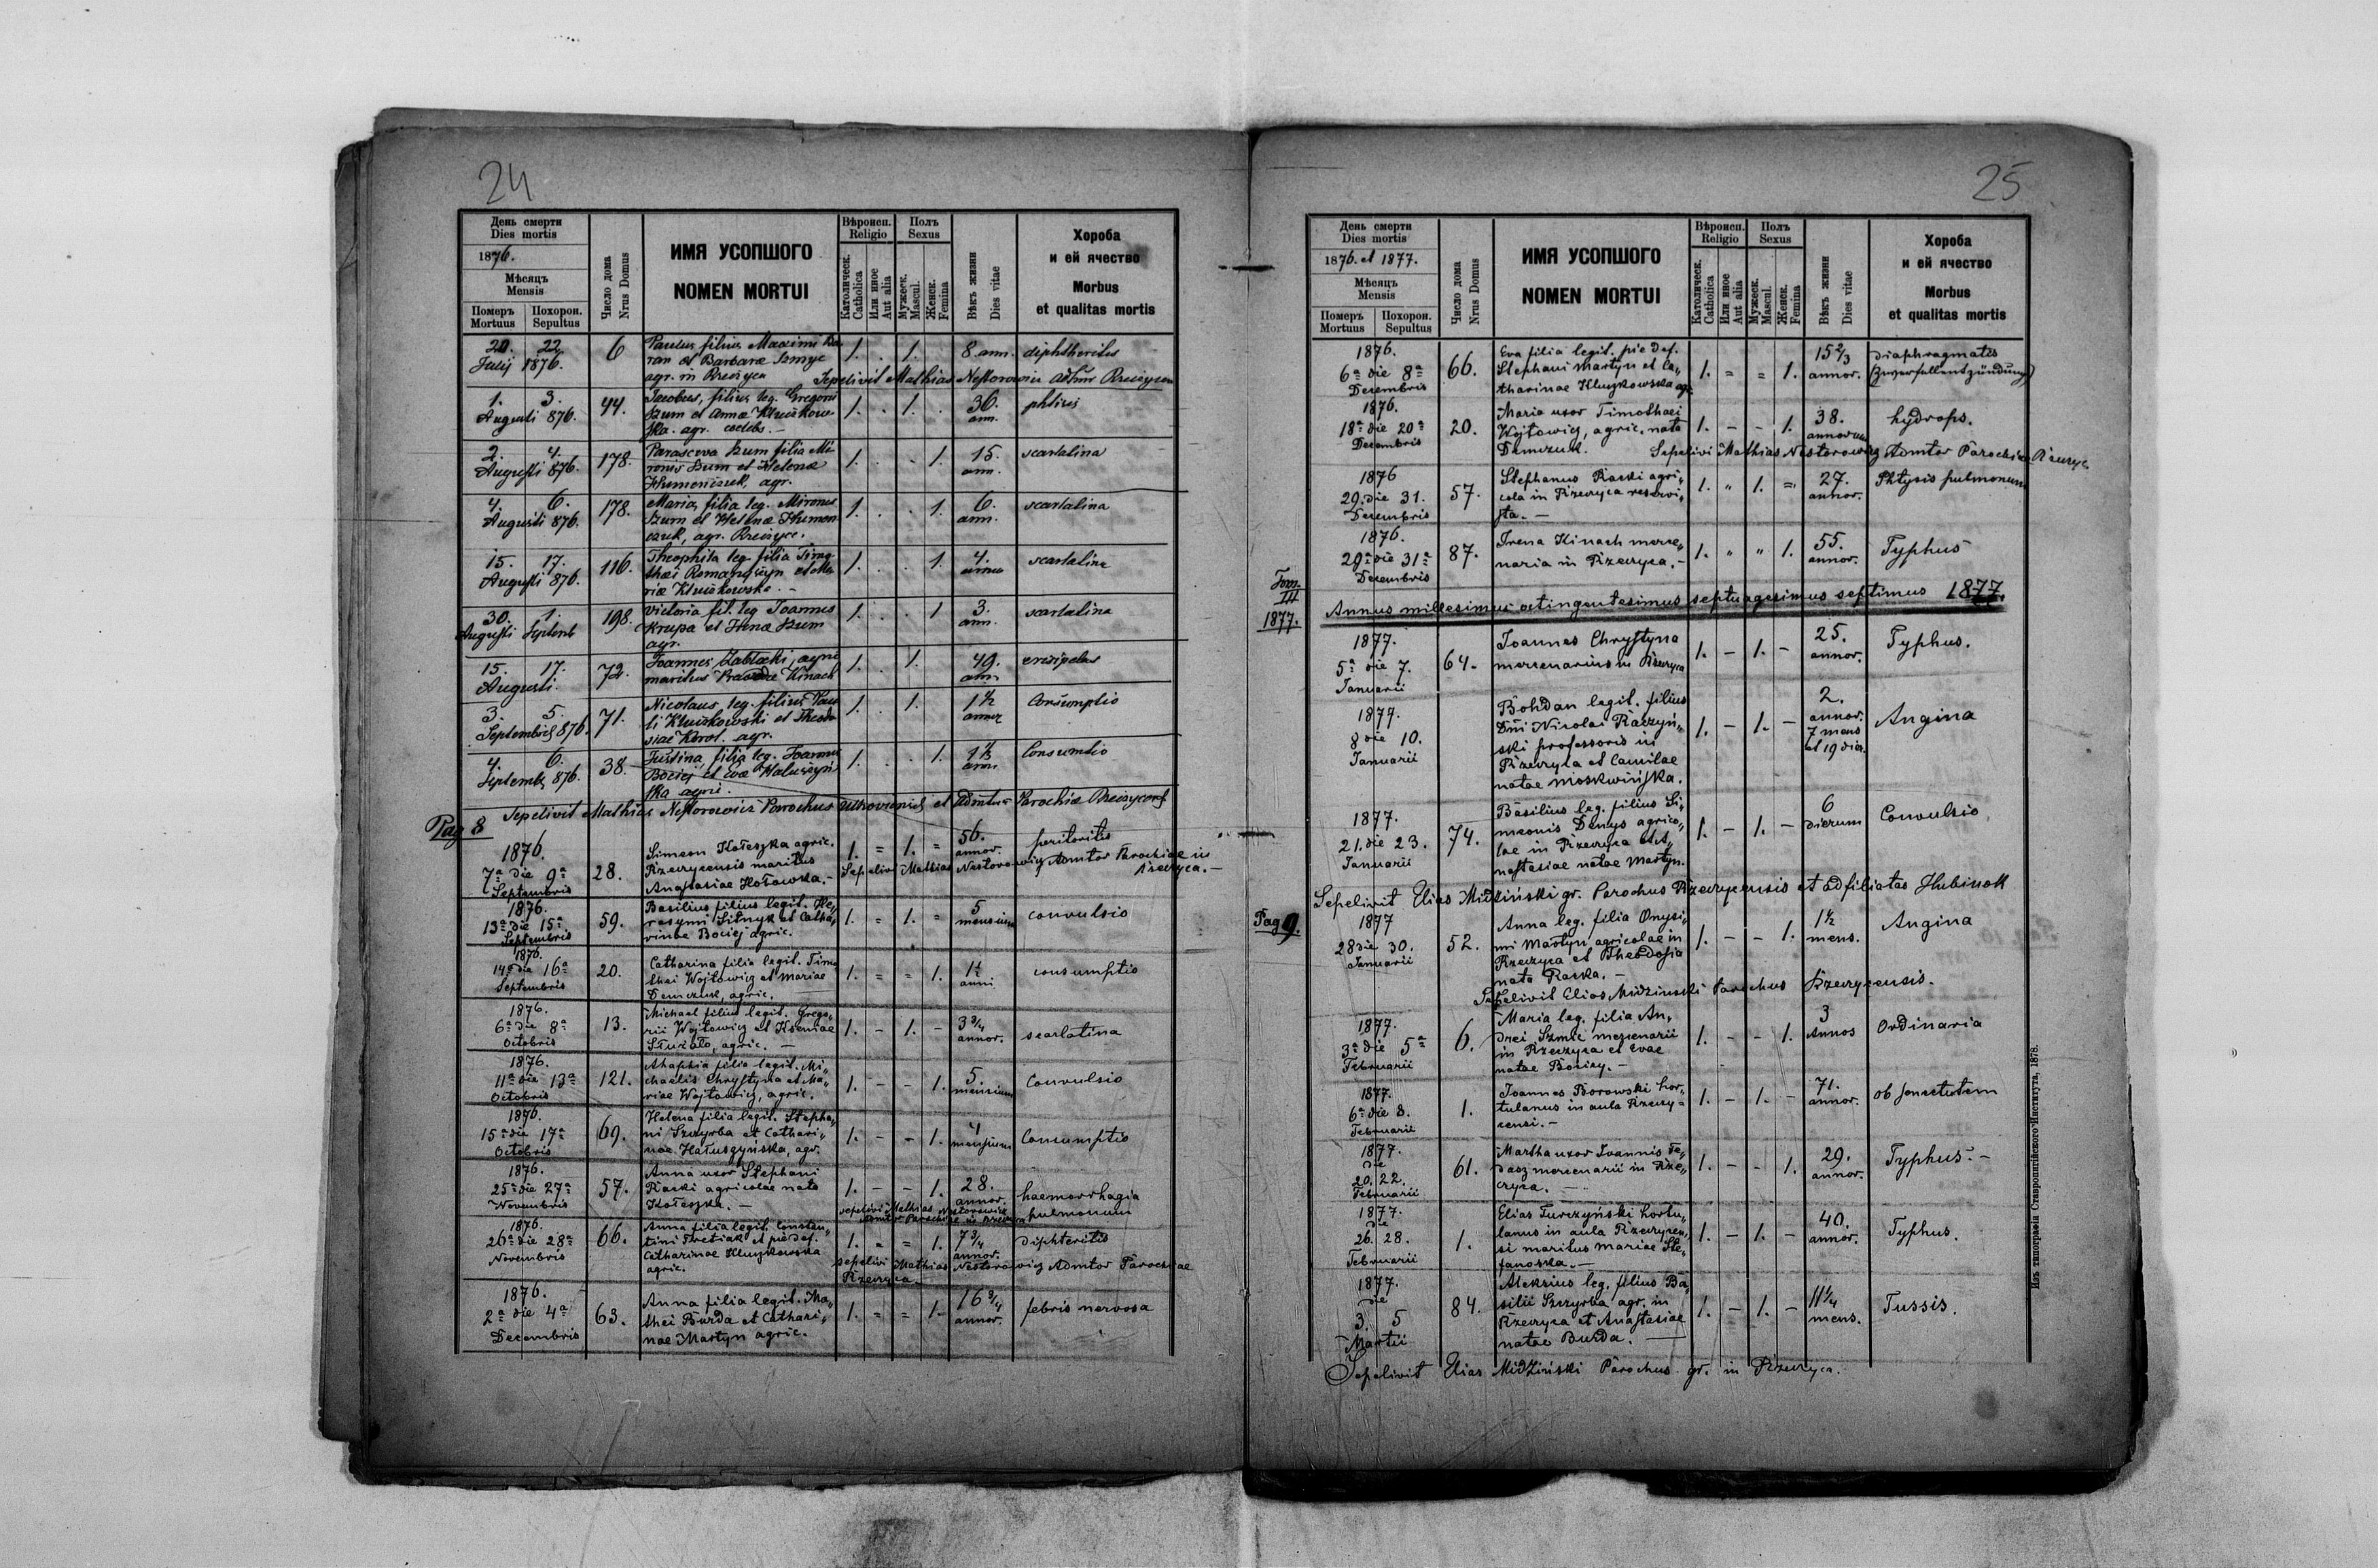 24
День смерти
Dies mortis
1876.
Мѣсяцъ
Mensis
Померъ Похорон.
Mortuus Sepultus
Число дома
Nrus Domus
ИМЯ УСОПШОГО
NOMEN MORTUI
Вѣроисп.
Religio
Католическ.
Catholica
Или иное
Aut alia
Полъ
Sexus
Мужеск.
Mascul.
Женск.
Femina
Вѣкъ жизни
Dies vitae
Хороба
и ей ячество
Morbus
et qualitas mortis
20. 22 6 Paulus filius Maximi Ba-
Julij 1876. ran et Barbarae Szmyc 1. . 1. 8 ann. diphtheritis
agr. in Rzeczyca Sepelivit Mathias Nestorowicz
1. 3. 44. Jacobus, filius leg. Gregorii
Augusti 876. Szum et Annae Kluczkow- 1. . 1. . 36. ann. phtisis
ska. agr. coelebs. –
2. 4. 178. Parasceva Szum filia Mi-
Augusti 876. ronis Szum et Helenae 1. . . 1. 15. ann. scarlatina
Humeniuk, agr.
4. 6. 178. Maria, filia leg. Mironis
Augusti 876. Szum et Helenae Humen 1. . . 1. 6. ann. scarlatina
iuk, agr.
15. 17. 116. Theophila leg. filia Timo-
Augusti 876. thei et Ma 1. . . 1. 4. scarlatina
riae Kluczkowska. –
30. 1. 198. Victoria fil. leg Joannis
Augusti Septemb Krupa et Szum 1. . . 1 3. ann. scarlatina
agr.
15. 17. 72. Joannes Zabłocki, agri
Augusti. maritus Kinach 1. . 1. 49. ann.
3. 5. 71. Nicolaus, leg. filius Pau
Septembris 876. li Kluczkowski et Theodo 1. . 1. 1½ Consumptio
siae agr.
4. 6. 38. Justina, filia leg. Joannis
Septemb. 876. Bociej et Evae Haluszyń 1. . . 1. 1½ ann. Consumtio
ska agri.
Sepelivit Mathias Nestorowicz Parochus et Admtor Parochiae
Pag 8
1876. Simeon Hołeszka agric.
7ª die 9ª 28. Rzeczycensis maritus 1. = 1. = 56. annor.
Septembris Anastasiae Hołowska. – Sepelivi Mathias Nestorowicz Admtor Parochiae in
Rzeczyca. –
1876. Basilius filius legit. He„
13ª die 15ª 59. Sitnyk et Catha„ 1. = 1. = 5 mensium convulsio
Septembris rinae Bociej agric.
1876. Catharina filia legit. Timo
14ª die 16ª 20. thei Wojtowicz et Mariae 1. = = 1. 1½ anni consumptio
Septembris Demczuk, agric.
1876. Michael filius legit. Grego„
6ª die 8ª 13. rii Wojtowicz et Kseniae 1. – 1. – 3 3/4 annor. scarlatina
Octobris agric. –
1876. Ahaphia filia legit. Mi„
11ª die 13ª 121. chaelis Chrystyna et Ma„ 1. – – 1. 5. mensium Convulsio
Octobris riae Wojtowicz, agric.
1876. Helena filia legit. Stepha„
15ª die 17ª 69. ni Szczyrba et Cathari„ 1. – – 1. 4 mensium Consumptio
Octobris nae Hałuszyńska, agr.
1876. Anna uxor Stephani
25ª die 27ª 57. Racki agricolae nata 1. – – 1. 28. annor. haemorrhagia
Novembris Hołeszka. – pulmonum
sepelivi Mathias Nestorowicz
Admtor Parochiae in Rzeczyca
1876. Anna filia legit. Constan„
26ª die 28ª 66. tini Tretiak et pie def. 1. = = 1. 7 3/4 annor. Diphteritis
Novembris Catharinae Kluczkowska
agric. sepelivi Mathias Nestorowicz Admtor Parochiae
Rzeczyca –
1876. Anna filia legit. Ma„
2ª die 4ª 63. thei Burda et Cathari„ 1. = = 1. 16 3/4 annor. febris nervosa
Decembris nae Martyn agric.
25
День смерти
Dies mortis
1876. et 1877.
Мѣсяцъ
Mensis
Померъ Похорон.
Mortuus Sepultus
Число дома
Nrus Domus
ИМЯ УСОПШОГО
NOMEN MORTUI
Вѣроисп.
Religio
Католическ.
Catholica
Или иное
Aut alia
Полъ
Sexus
Мужеск.
Mascul.
Женск.
Femina
Вѣкъ жизни
Dies vitae
Хороба
и ей ячество
Morbus
et qualitas mortis
1876. Eva filia legit. pie def.
6ª die 8ª 66. Stephani Martyn et Ca„ 1. = = 1. 15 2/3 annor. Diaphragmatis
Decembris tharinae Kluczkowska agr. (Zwerfellentzündung)
1876. Maria uxor Timothaei
18ª die 20ª 20. Wojtowicz, agric. nata 1. – – 1. 38. annorum hydrops.
Decembris Demczuk. Sepelivi Mathias Nestorowicz Admtor Parochiae Rzeczyca
1876 Stephanus Racki agri„
29. die 31. 57. cola in Rzeczyca reservi„ 1. " 1. = 27. annor. Phtysis pulmonum
Decembris sta. –
1876. Irena Kinach merce„
29ª die 31ª 87. naria in Rzeczyca. – 1. " " 1. 55. annor. Typhus
Decembris
Tom.
III
1877.
Annus millesimus octingentesimus septuagesimus septimus 1877.
1877. Joannes Chrystyna
5ª die 7. 64. mercenarius in Rzeczyca 1. – 1. – 25. annor. Typhus.
Januarii
1877. Bohdan legit. filius
8 die 10. Dni Nicolai Raczyń„ 1. – 1. – 2. annor. 7 mens et 19 dier. Angina
Januarii ski professoris in
Rzeczyca et Camilae
natae Moskwińska.
1877. Basilius leg. filius Si„
21. die 23. 74. meonis Denys agrico„ 1. – 1. – 6 dierum Convulsio
Januarii lae in Rzeczyca et A„
nastasiae natae Martyn.
Sepelivit Elias Midziński gr. Parochus Rzeczycensis et adfiliatae Hubinok
Pag 9.
1877 Anna leg. filia Onysi„
28 die 30. 52. mi Martyn agricolae in 1. – – 1. 1½ mens. Angina
Januarii Rzeczyca et Theodosia
nata Racka. –
Sepelivit Elias Midzinski Parochus Rzeczycensis.
1877. Maria leg. filia An„
3ª die 5ª 6. drei Szmic mercenarii 1. – – 1. 3 Annos Ordinaria
Februarii in Rzeczyca et Evae
natae Bociey. –
1877. Joannes Borowski hor„
6ª die 8. 1. tulanus in aula Rzeczy= 1. – 1. – 71. annor. ob senectutem
Februarii censi. –
1877. Martha uxor Joannis Fe„
die 61. dasz mercenarii in Rze„ 1. – – 1. 29. annor. Typhus. –
20. 22. czyca. –
Februarii
1877. Elias Turczyński hortu„
die lanus in aula Rzeczycen„ 1. – 1. – 40. annor. Typhus.
26. 28. 1. si maritus Mariae Ste„
Februarii fanoska. –
1877. Aleksius leg. filius Ba„
die 84. silii Szczyrba agr. in 1. – 1. – 11¼ mens. Tussis.
3. 5 Rzeczyca et Anastasiae
Martii natae Burda. –
Sepelivit Elias Midziński Parochus gr. in Rzeczyca.
Изъ типографіи Ставропигійского Института, 1878.